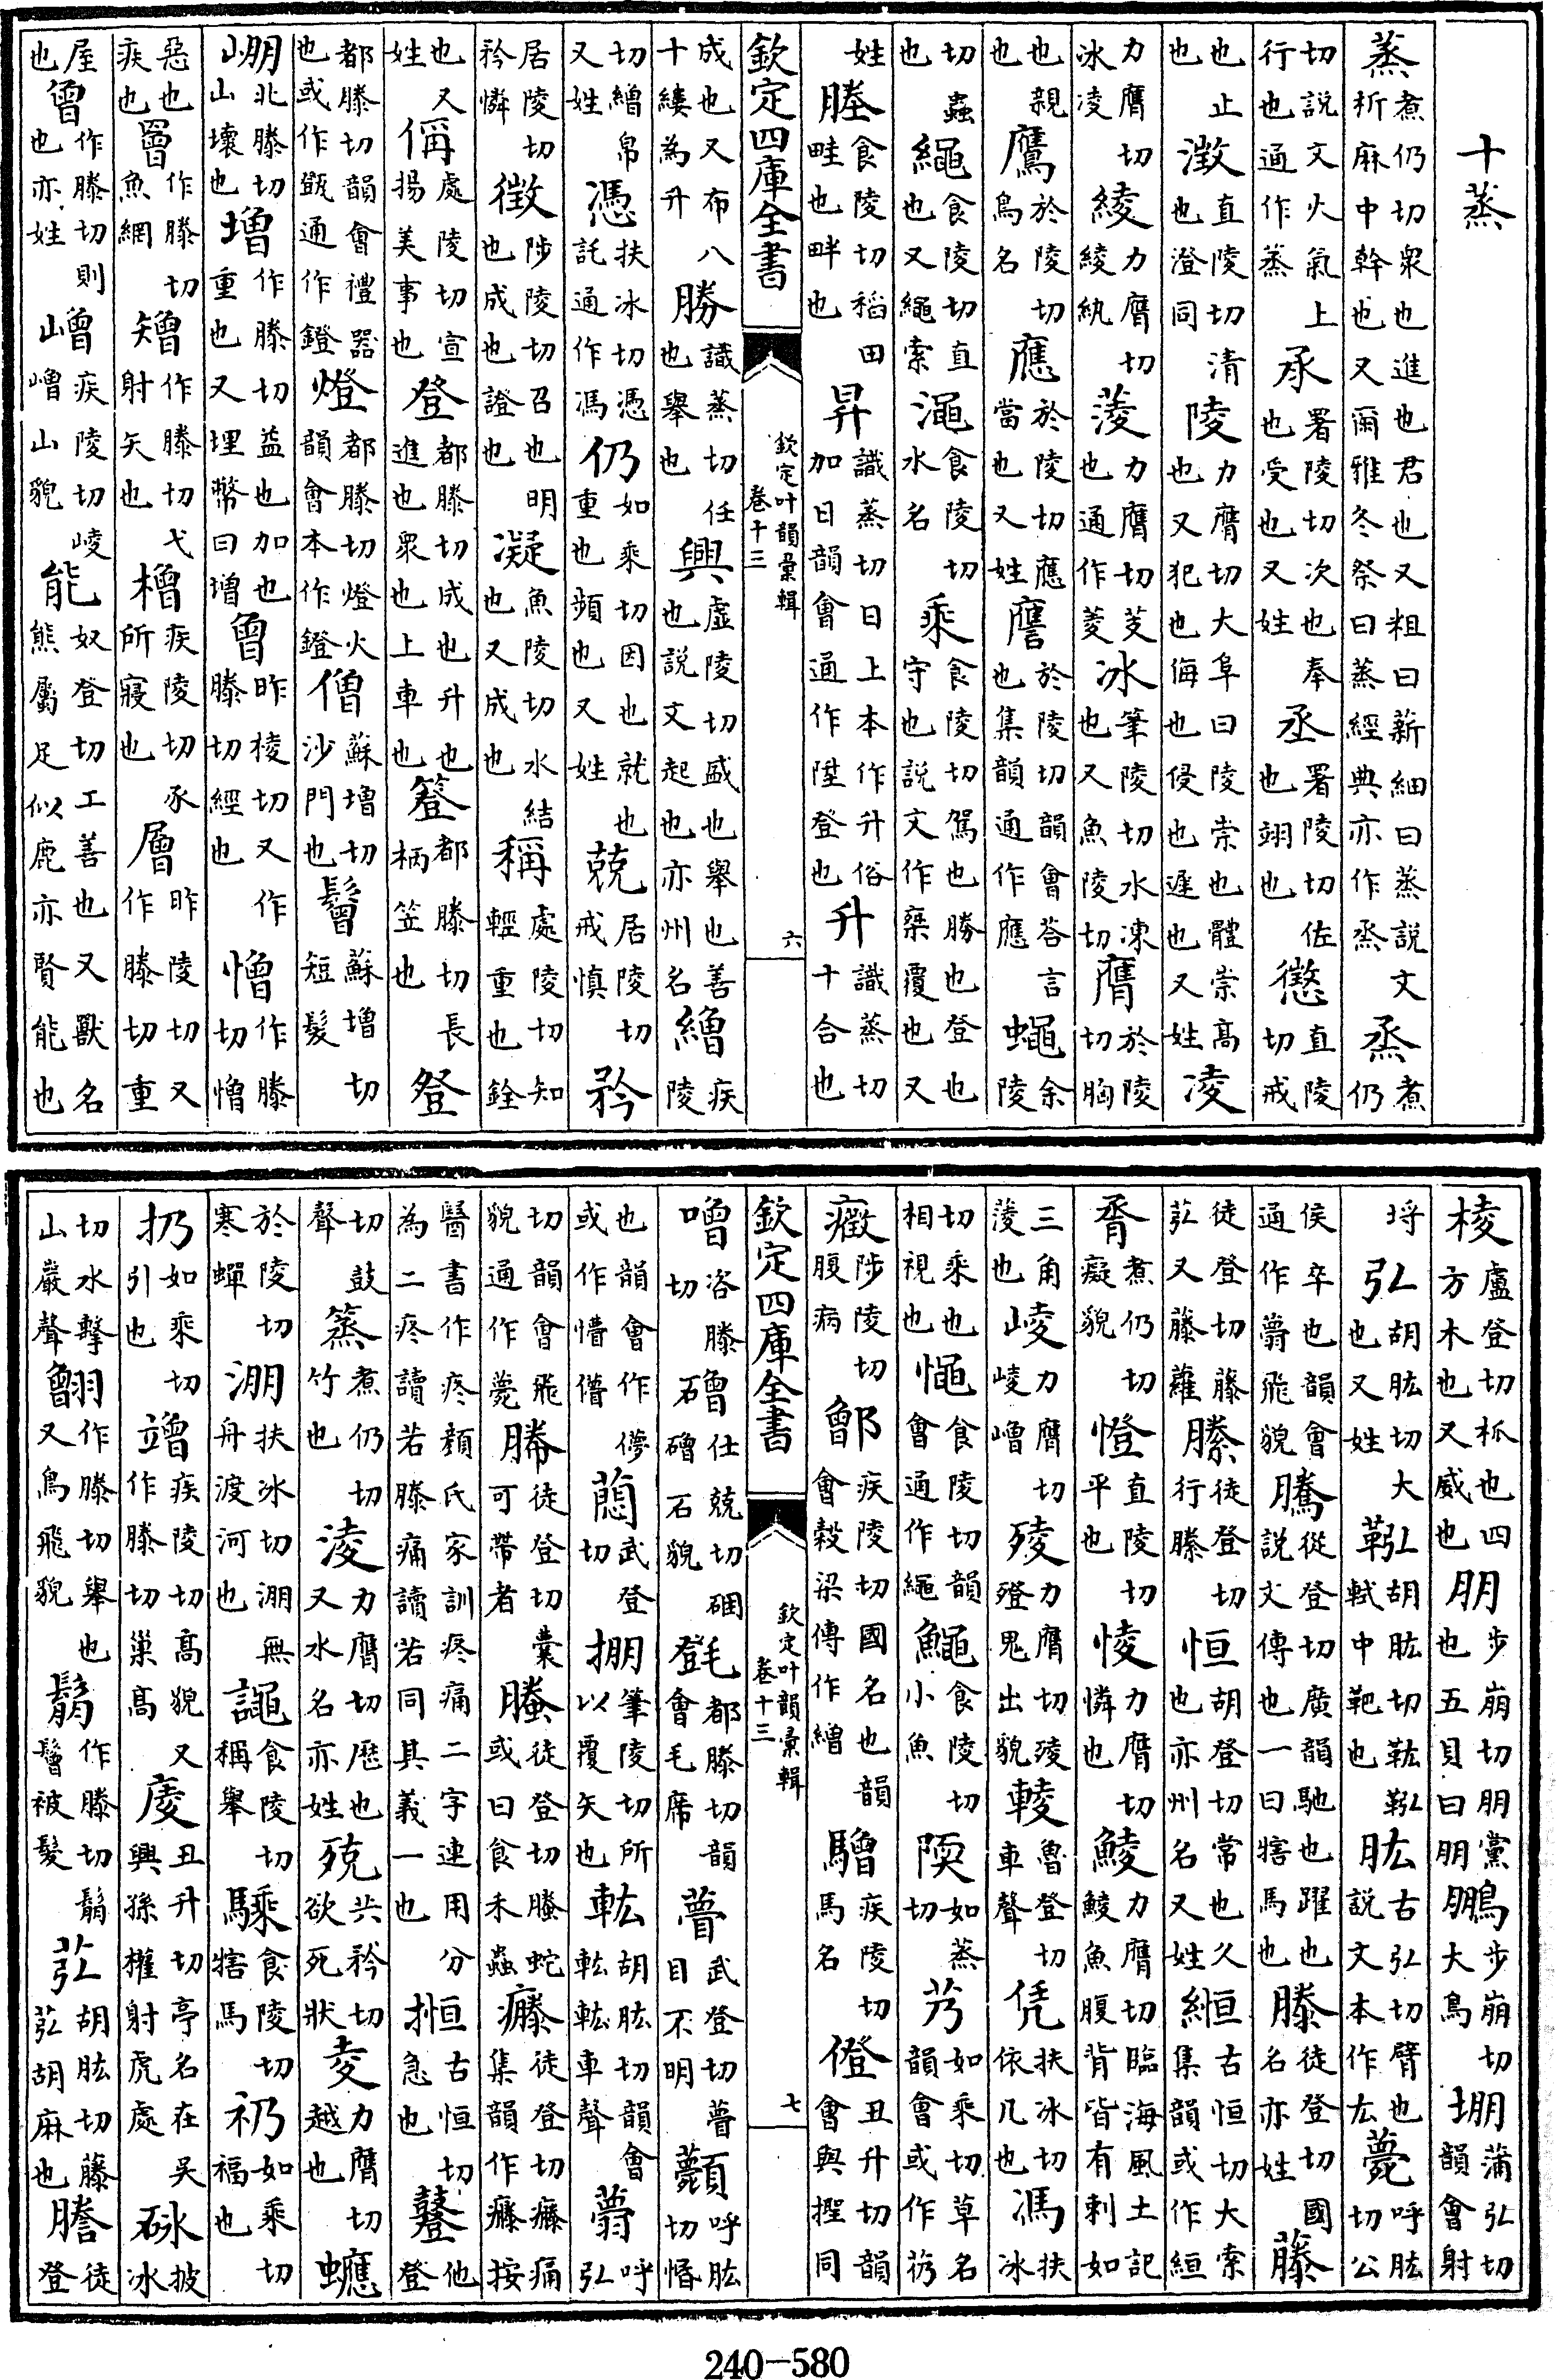 十蒸
蒸煮仍切衆也進也君也又粗曰薪細曰蒸説文析麻中幹也又爾雅冬祭曰蒸經典亦作烝烝煮仍
切説文火氣上行也通作蒸承署陵切次也奉也受也又姓丞署陵切佐也翊也懲直陵切戒
也止也澂直陵切清也澄同陵力膺切大阜曰陵崇也體崇高也又犯也侮也侵也遲也又姓凌
力膺切冰凌綾力膺切綾紈蔆力膺切芰也通作菱冰筆陵切水凍也又魚陵切膺於陵切胸
也親也鷹於陵切鳥名應於陵切應當也又姓譍於陵切韻會答言也集韻通作應蠅余陵
切蟲也繩食陵切直也又繩索澠食陵切水名乘食陵切駕也勝也登也守也説文作椉覆也又
姓塍食陵切稻田畦也畔也昇識蒸切日上本作升俗加日韻會通作陞登也升識蒸切十合也
欽定四庫全書 欽定叶韻彙輯 卷十三 六
成也又布八十縷為升勝識蒸切任也舉也興虛陵切盛也舉也善也説文起也亦州名繒疾陵
切繒帛又姓憑扶冰切憑託通作馮仍如乘切因也就也重也頻也又姓兢居陵切戒慎矜
居陵切矜憐徴陟陵切召也明也成也證也凝魚陵切水結也又成也稱處陵切知輕重也銓
也又姓偁處陵切宣揚美事也登都滕切成也升也進也衆也上車也簦都滕切長柄笠也豋
都滕切韻會禮器也或作甑通作鐙燈都滕切燈火韻會本作鐙僧蘇増切沙門也鬙蘇増切短髮
崩北滕切山壞也増作滕切益也加也重也又埋幣曰増曾昨棱切又作滕切經也憎作滕切憎
惡也疾也罾作滕切魚網矰作滕切弋射矢也橧疾陵切豕所寢也層昨陵切又作滕切重
屋也曾作滕切則也亦姓嶒疾陵切崚嶒山貌能奴登切工善也又獸名熊屬足似鹿亦賢能也
棱盧登切柧也四方木也又威也朋步崩切朋黨也五貝曰朋鵬步崩切大鳥堋蒲弘切韻會射
埓弘胡肱切大也又姓鞃胡肱切鞃軾中靶也肱古弘切臂也説文本作厷薨呼肱切公
侯卒也韻會通作薨飛貌騰從登切廣韻馳也躍也説文傳也一曰犗馬也滕徒登切國名亦姓藤
徒登切藤苰又藤蘿縢徒登切行縢恒胡登切常也久也亦州名又姓緪古恒切大索集韻或作絙
脀煮仍切癡貌憕直陵切平也㥄力膺切憐也鯪力膺切臨海風土記鯪魚腹背皆有刺如
三角蔆也崚力膺切崚嶒㱥力膺切㱥鬼出貌輘魯登切車聲凭扶冰切依几也馮扶冰
切乘也相視也憴食陵切韻會通作繩鱦食陵切小魚陾如蒸切艿如乘切草名韻會或作
癥陟陵切腹病鄫疾陵切國名也韻會榖梁傳作繒驓疾陵切馬名僜丑升切韻會與撜同
欽定四庫全書 欽定叶韻彙輯 卷十三 七
噌咨滕切磳仕兢切硱磳石貌㲪都滕切韻會毛席瞢武登切瞢目不明顭呼肱切惛
也韻會作儚或作懵僭武登切掤筆陵切所以覆矢也䡏胡肱切韻會䡏䡏車聲呼弘
切韻會飛貌通作薨幐徒登切囊可帶者螣徒登切螣蛇或曰食禾蟲徒登切痛集韻作按
醫書作疼顔氏家訓疼痛二字連用分為二疼讀若滕痛讀若同其義一也揯古恒切急也鼟他登
切鼓聲煮仍切竹也淩力膺切歷也又水名亦姓殑共矜切欲死狀夌力膺切越也
於陵切寒蟬淜扶冰切淜無舟渡河也譝食陵切稱舉騬食陵切犗馬礽如乘切福也
扔如乘切引也竲疾陵切高貌又作滕切巢高庱丑升切亭名在吳興孫權射虎處砯披冰
切水擊山巖聲䎖作滕切舉也又鳥飛貌鬅作滕切鬅鬙被髮苰胡肱切藤苰胡麻也謄徒登
240-580